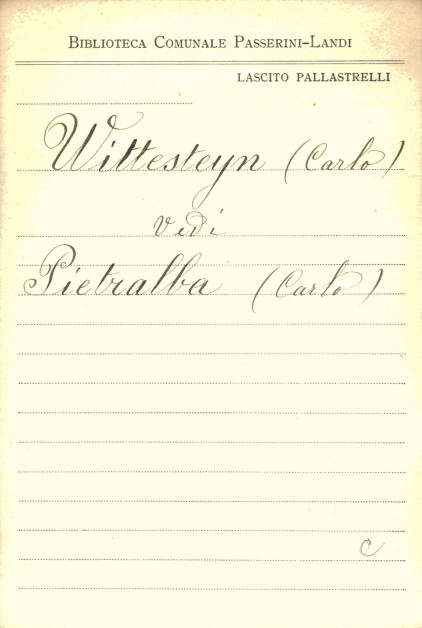 BIBLIOTECA COMUNALE PASSERINI-LANDI
LASCITO PALLASTRELLI
Wittesteyn (Carlo)
vedi
Pietralba (Carlo)
C